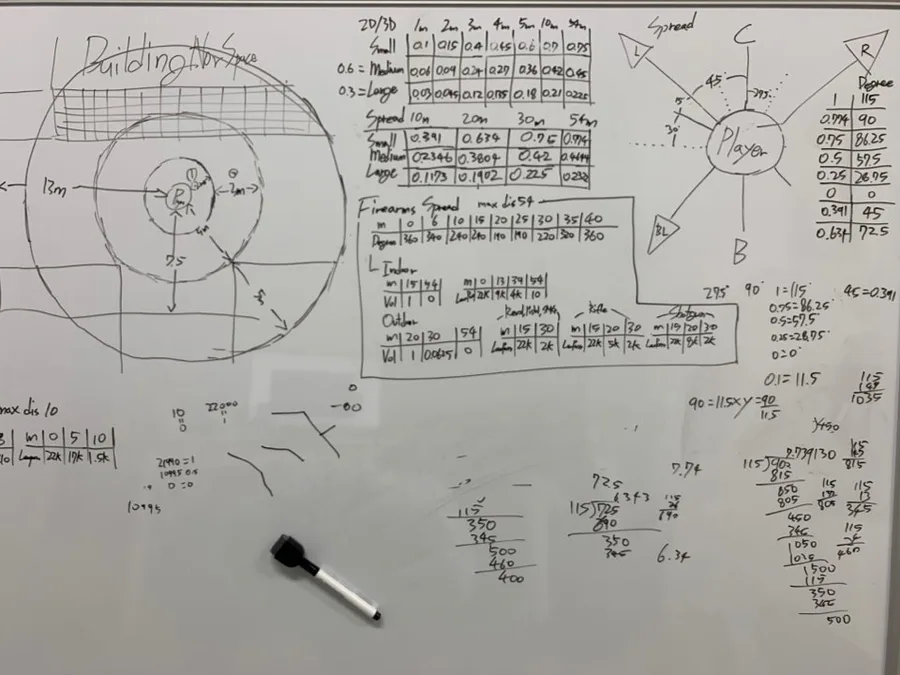 Building Non Space
13m
7.5
4m
2m
2D/3D 1m 2m 3m 4m 5m 10m 54m
Small 0.1 0.15 0.4 0.45 0.6 0.7 0.75
0.6 = Medium 0.06 0.09 0.24 0.27 0.36 0.42 0.45
0.3 = Large 0.03 0.045 0.12 0.135 0.18 0.21 0.225
Spread 10m 20m 30m 54m
Small 0.391 0.634 0.75 0.774
Medium 0.2346 0.3804 0.42 0.4644
Large 0.1173 0.1902 0.225 0.232
Firearms Spread max dis 54
m 0 6 10 15 20 25 30 35 40
Degree 360 340 240 210 190 190 220 320 360
Indoor
m 15 54
Vol 1 0
m 0 13 39 54
22k 9k 4k 10
Outdoor
m 20 30 54
Vol 1 0.0625 0
m 15 30
22k 2k
Rifle
m 15 20 30
22k 5k 2k
Shotgun
m 15 20 30
22k 8k 2k
Spread
L
C
R
45°
22.5°
15°
30°
Player
BL
B
Degree
1 115
0.774 90
0.75 86.25
0.5 57.5
0.25 28.75
0 0
0.391 45
0.634 72.5
90° 1=115°
45=0.391
0.75=86.25°
0.5=57.5°
0.25=28.75°
0=0°
0.1=11.5
90=11.5×y=90
11.5
115
1035
max dis 10
m 0 5 10
22k 17k 1.5k
10
"
0
22000
"
1
0
21990=1
10995 0.5
0=0
10995
115
350
345
500
460
400
725
6.343
115)725
690
350
345
115
690
7.74
6.34
115)902
815
850
805
450
345
1050
1035
1500
115
350
345
500
115
815
115
805
115
13
345
115
460